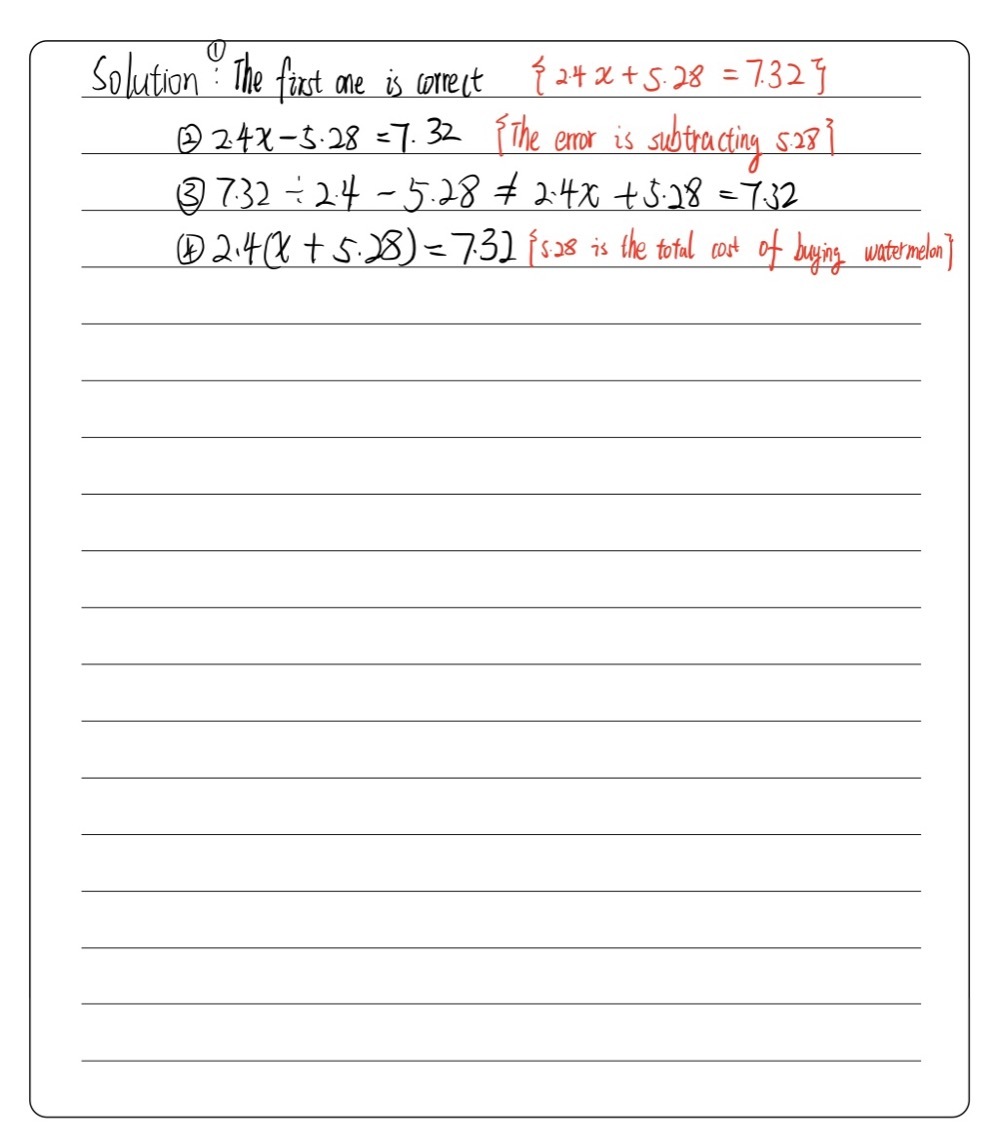 Solution ①: The first one is correct {2.4x + 5.28 = 7.32}
② 2.4x - 5.28 = 7.32 {The error is subtracting 5.28}
③ 7.32 ÷ 2.4 - 5.28 ≠ 2.4x + 5.28 = 7.32
④ 2.4(x + 5.28) = 7.32 {5.28 is the total cost of buying watermelon}